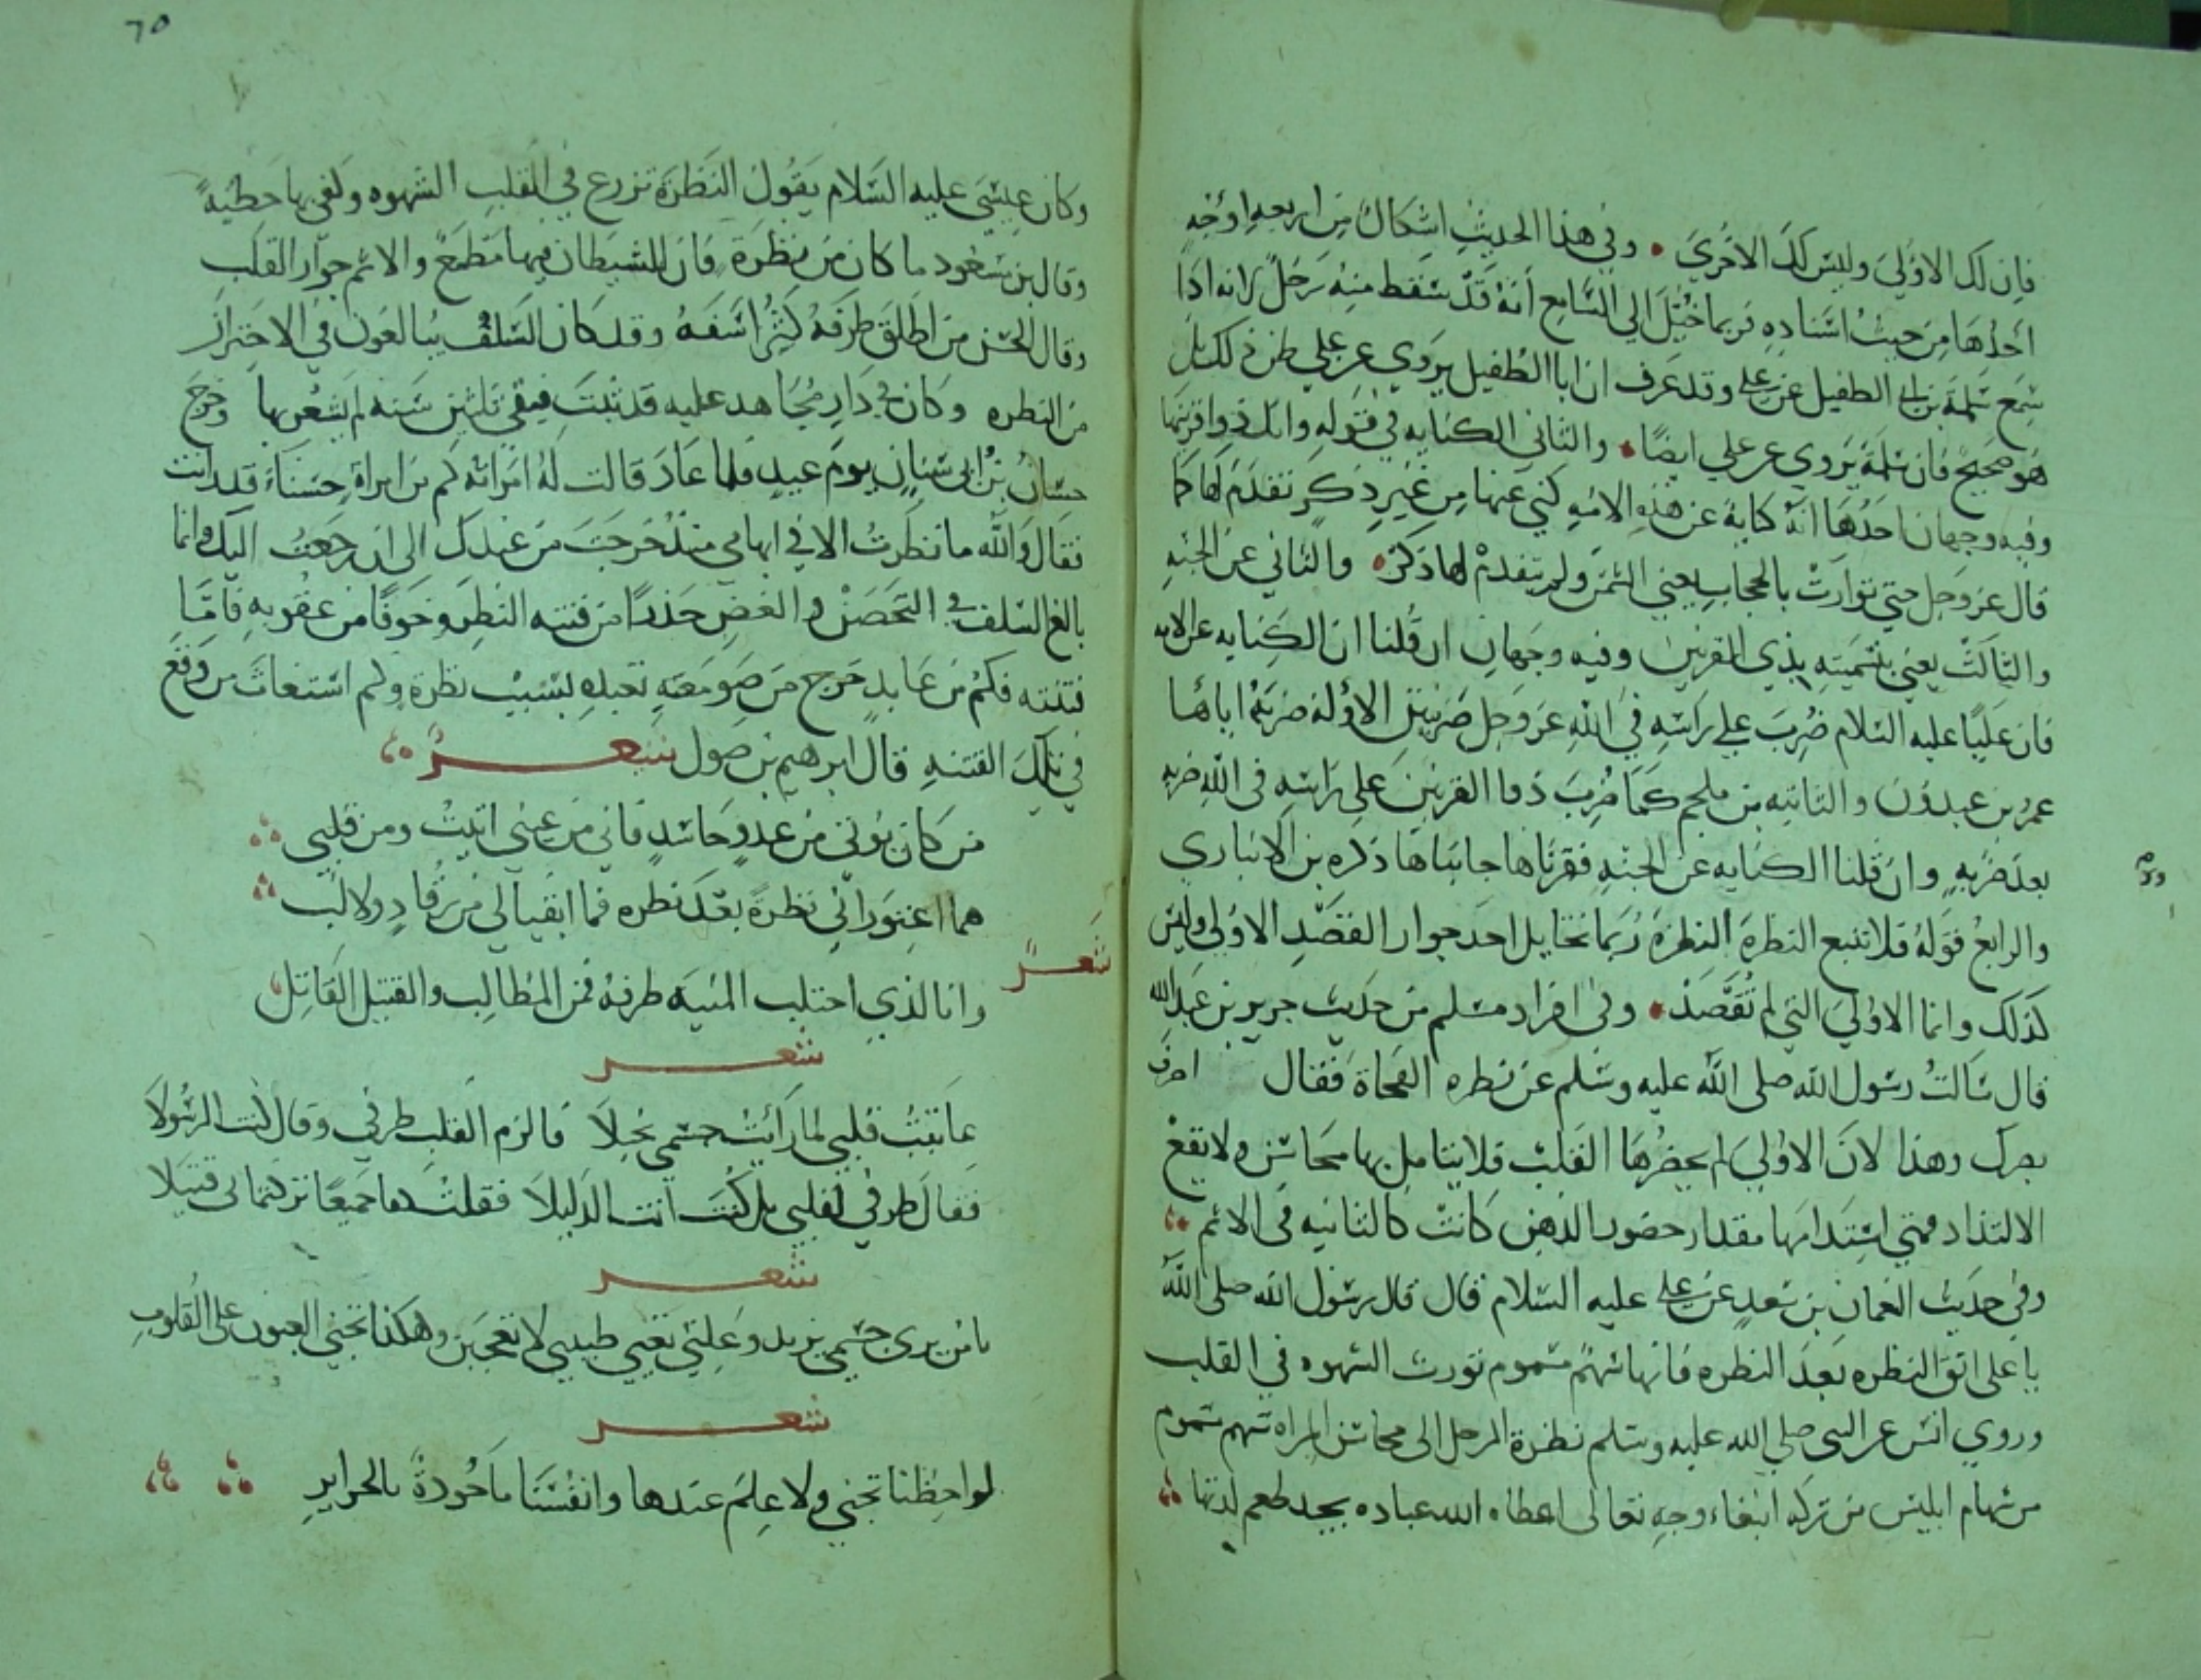 فان لك الاولى وليس لك الاخرى • وفي هذا الحديث اشكال من اربعه اوجه
احدها من حيث اسناده فربما خيل الى السامع انه قد سقط منه رجل لانه اذا
سمع سلمة بن ابي الطفيل عن علي وقد عرف ان ابا الطفيل يروي عن علي ظن ذلك بل
هو صحيح فان سلمة يروي عن علي ايضا • والثاني الكنايه في قوله وانك ذو اقرنيها
وفيه وجهان احدها انه كناية عن هذه الامه كني عنها من غير ذكر تقدم لها كما
قال عز وجل حتى توارت بالحجاب يعني الشمس ولم يتقدم لها ذكر • والثاني عن الجنه
والثالث يعني بتسميته بذي القرنين وفيه وجهان ان قلنا ان الكنايه عن الامه
فان عليا عليه السلام ضرب على راسه في الله عز وجل ضربتين الاولة ضربه اياها
عمر بن عبد ود والثانيه بن ملجم كما ضرب ذو القرنين على راسه في الله ضربه
بعد ضربه وان قلنا الكنايه عن الجنه فقرناها جانباها ذكره بن الانباري
والرابع قوله فلا تتبع النظرة النظرة ربما تخايل احد جواز القصد الاولى وليس
كذلك وانما الاولى التي لم تقصد • وفي افراد مسلم من حديث جرير بن عبد الله
قال سالت رسول الله صلى الله عليه وسلم عن نظره الفجاة فقال اصرف
بصرك وهذا لان الاولى لم يحضرها القلب فلا يتامل بها محاسن ولا يقع
الالتذاذ فمتى استدامها مقدار حضور الذهن كانت كالثانيه في الاثم
وفي حديث النعمان بن سعد عن علي عليه السلام قال قال رسول الله صلى الله
يا علي اتق النظره بعد النظره فانها سهم مسموم تورث الشهوه في القلب
وروي انس عن النبي صلي الله عليه وسلم نظرة الرجل الى محاسن المراه سهم مسموم
من سهام ابليس من تركه ابتغاء وجه تعالى اعطاه الله عباده يجد طعم لذتها
وكان عيسى عليه السلام يقول النظرة تزرع في القلب الشهوه وكفى بها خطية
وقال بن مسعود ما كان من نظرة فان للشيطان فيها مطمع والاثم حواز القلب
وقال الحسن من اطلق طرفه كثر اسفه وقد كان السلف يبالغون في الاحتراز
من النظره وكان في دار مجاهد عليه قد بنيت فبقي ثلثين سنه لم يشعر بها وخرج
حسان بن ابي سنان يوم عيد فلما عاد قالت له امراته كم من امراة حسناء قد رايت
فقال والله ما نظرت الا في ابهامي منذ خرجت من عندك الى ان رجعت اليك وانما
بالغ السلف في التحصن والغض حذرا من فتنه النظر وخوفا من عقوبه فاما
فتنته فكم من عابد خرج من صومعته تعبده بسبب نظرة وكم استغاث من وقع
في تلك الفتنه قال ابرهيم بن صول شعر
من كان يوتى من عدو حاسد فاني من عيني اتيت ومن قلبي
هما اعتوراني نظرة بعد نظره فما ابقيا لي من رقاد ولا لب
شعر
وانا الذي اجتلب المنية طرفه فمن المطالب والقتيل القاتل
شعر
عاتبت قلبي لما رأيت جسمي نحيلا فالزم القلب طرفي وقال كنت الرسولا
فقال طرفي لقلبي بل كنت انت الدليلا فقلت كفا جميعا تركتماني قتيلا
شعر
يا من يرى جسمي يزيد وعلتي تعيي طبيبي لا تعجبن وهكذا تجني العيون على القلوب
شعر
لواحظنا تجني ولا علم عندها وانفسنا ماخوذة بالجراير